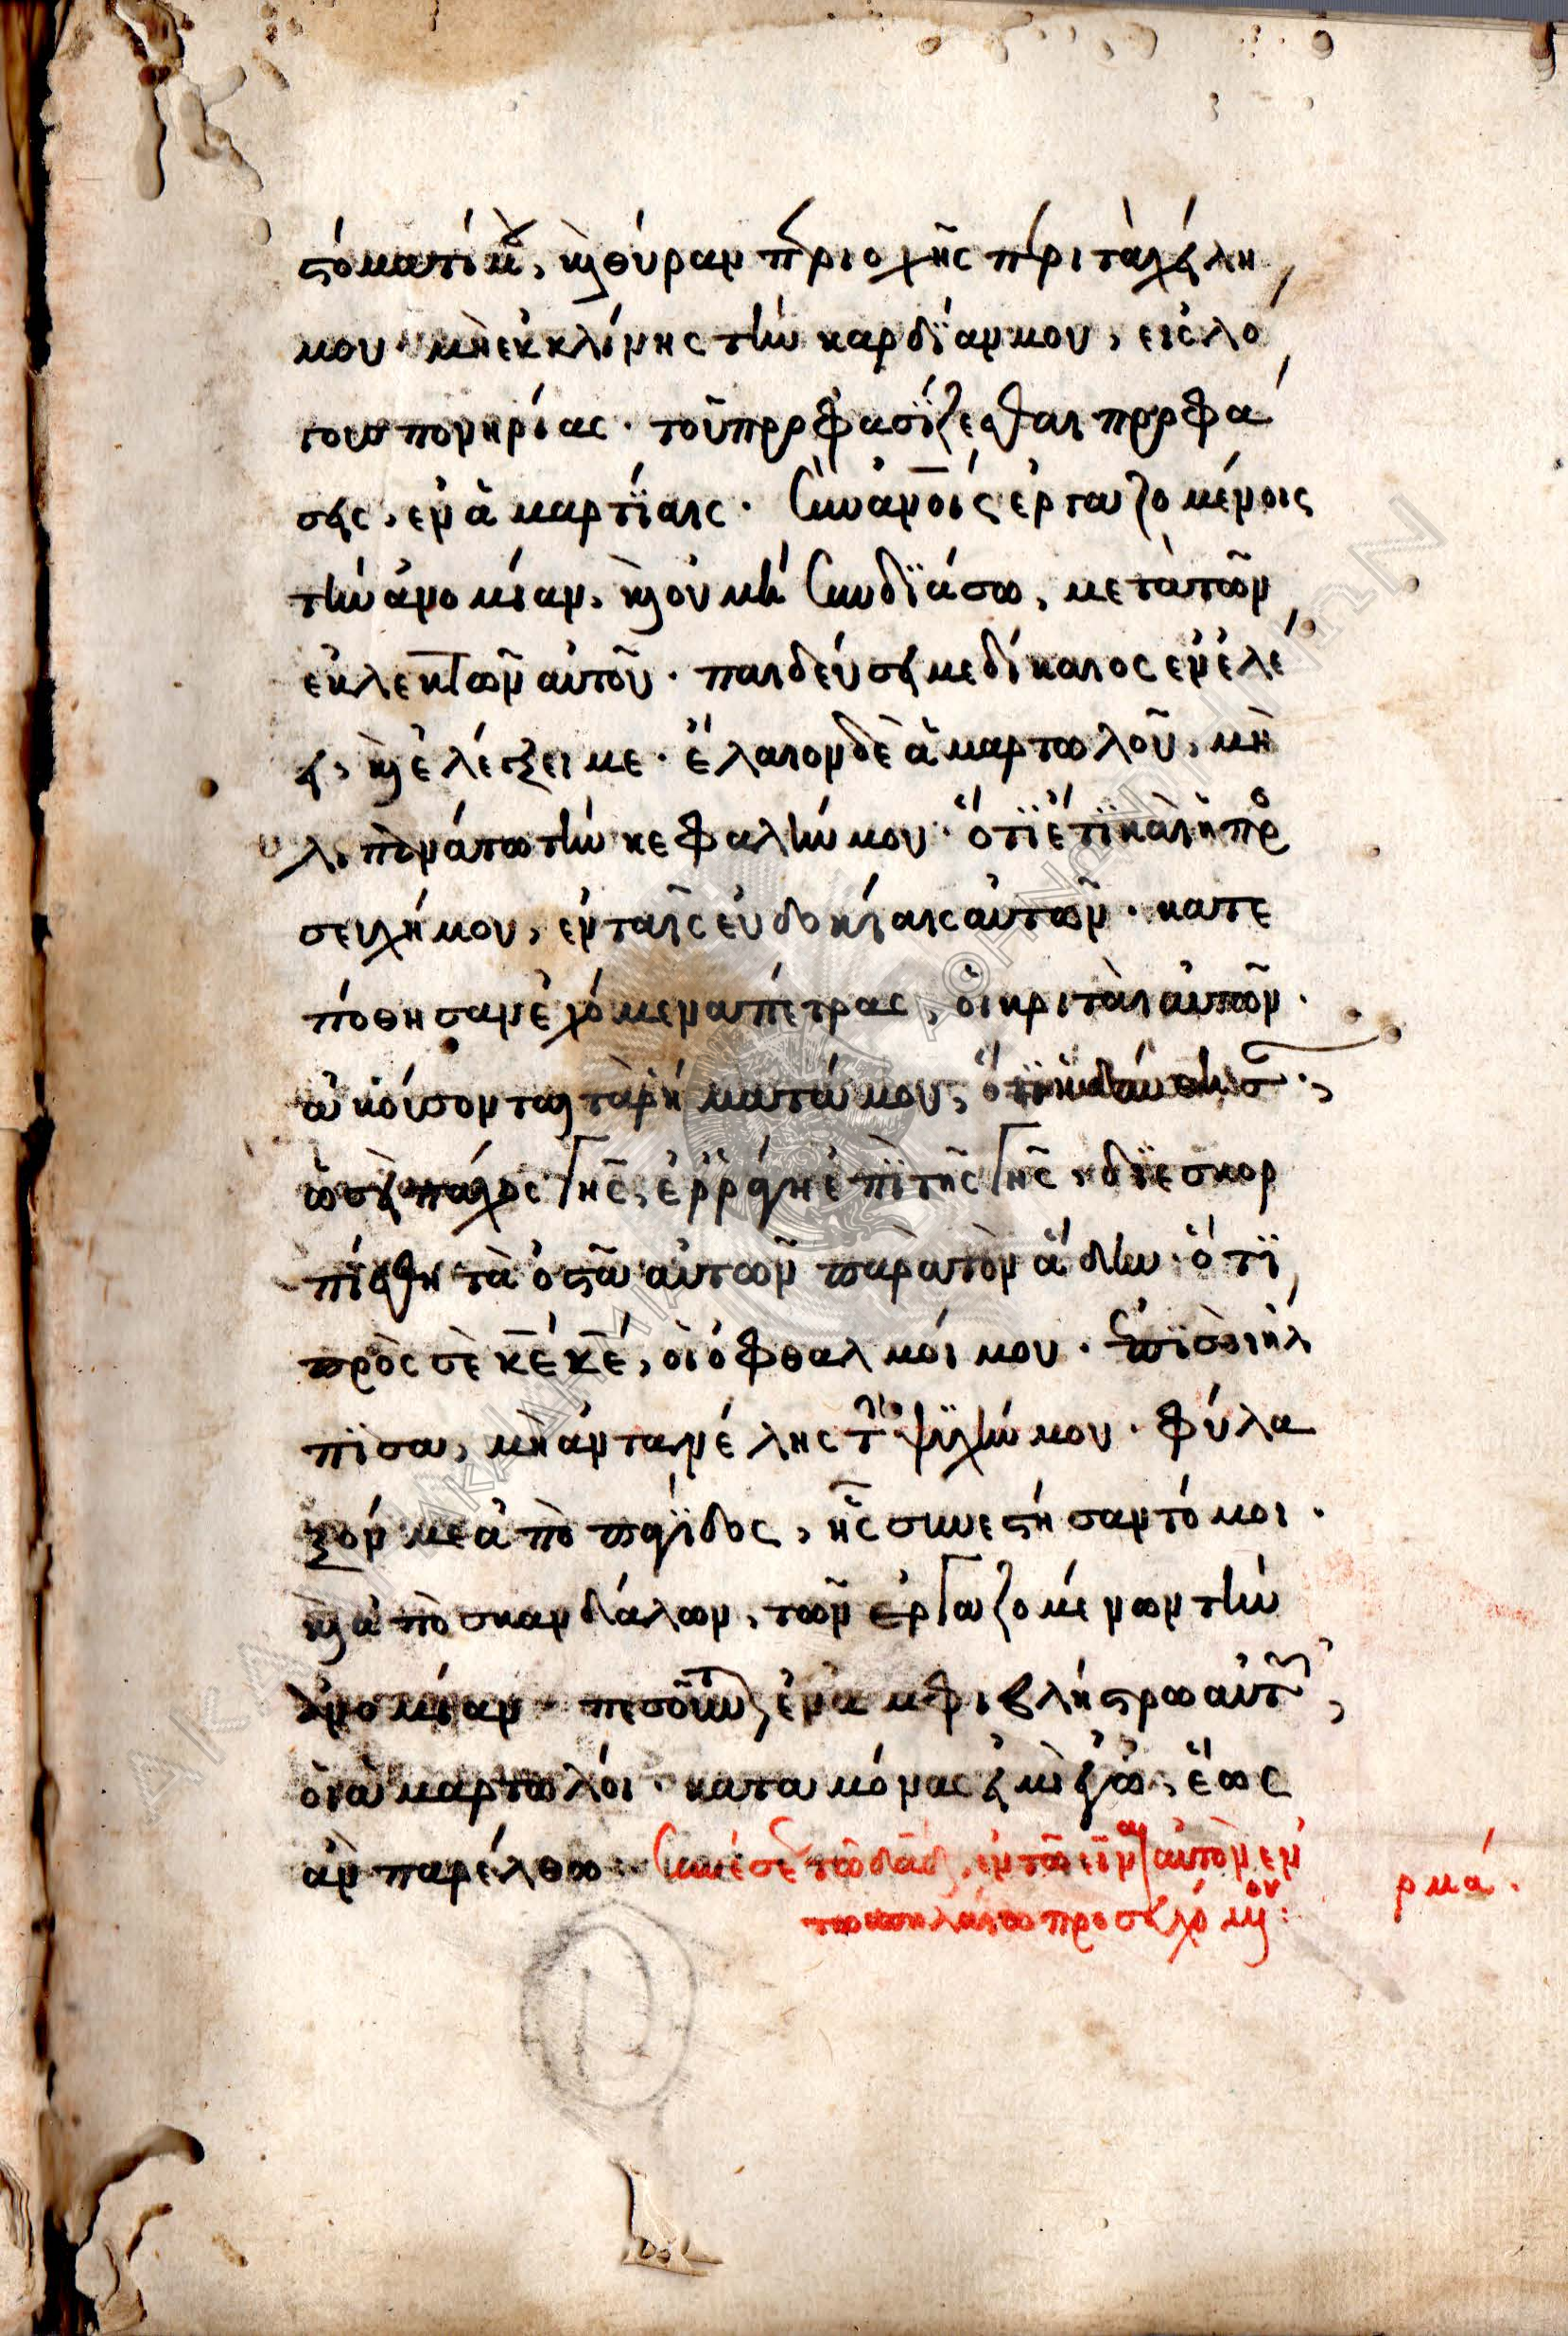 στόματί μου, καὶ θύραν περιοχῆς περὶ τὰ χείλη
μου· μὴ ἐκκλίνης τὴν καρδίαν μου, εἰς λό
γους πονηρίας· τοῦ προφασίζεσθαι προφά
σεις, ἐν ἁμαρτίαις· σὺν ἀνοις ἐργαζομένοις
τὴν ἀνομίαν, καὶ οὐ μὴ συνδιάσω, μετὰ τῶν
ἐκλεκτῶν αὐτοῦ· παιδεύσει με δίκαιος ἐν ἐλέ
ει, καὶ ἐλέγξει με· ἔλαιον δὲ ἁμαρτωλοῦ, μὴ
λιπανάτω τὴν κεφαλήν μου· ὅτι ἔτι καὶ ἡ προ
σευχή μου, ἐν ταῖς εὐδοκίαις αὐτῶν· κατε
πόθησαν ἐχόμενα πέτρας, οἱ κριταὶ αὐτῶν·
ἀκούσονται τὰ ῥήματά μου, ὅτι ἡδύνθησ·,
ὡσεὶ πάχος γῆς, ἐρράγη ἐπὶ τῆς γῆς, διεσκορ
πίσθη τὰ ὀστᾶ αὐτῶν παρὰ τὸν ἅδην· ὅτι
πρὸς σὲ κε κε, οἱ ὀφθαλμοί μου· ἐπὶ σοὶ ἤλ
πισα, μὴ ἀντανέλης τὴν ψυχήν μου· φύλα
ξόν με ἀπὸ παγίδος, ἧς συνεστήσαντό μοι·
καὶ ἀπὸ σκανδάλων, τῶν ἐργαζομένων τὴν
ἀνομίαν· πεσοῦνται ἐν ἀμφιβλήστρω αὐτῶν,
οἱ ἁμαρτωλοί· κατὰ μόνας εἰμὶ ἐγὼ, ἕως
ἂν παρέλθω· συνέσεως τῶ δαδ, ἐν τῶ εἶναι αὐτὸν ἐν
τῶ σπηλαίω προσευχόμενον:
ρμά·
ΑΚΑΔΗΜΙΑ ΑΘΗΝΩΝ